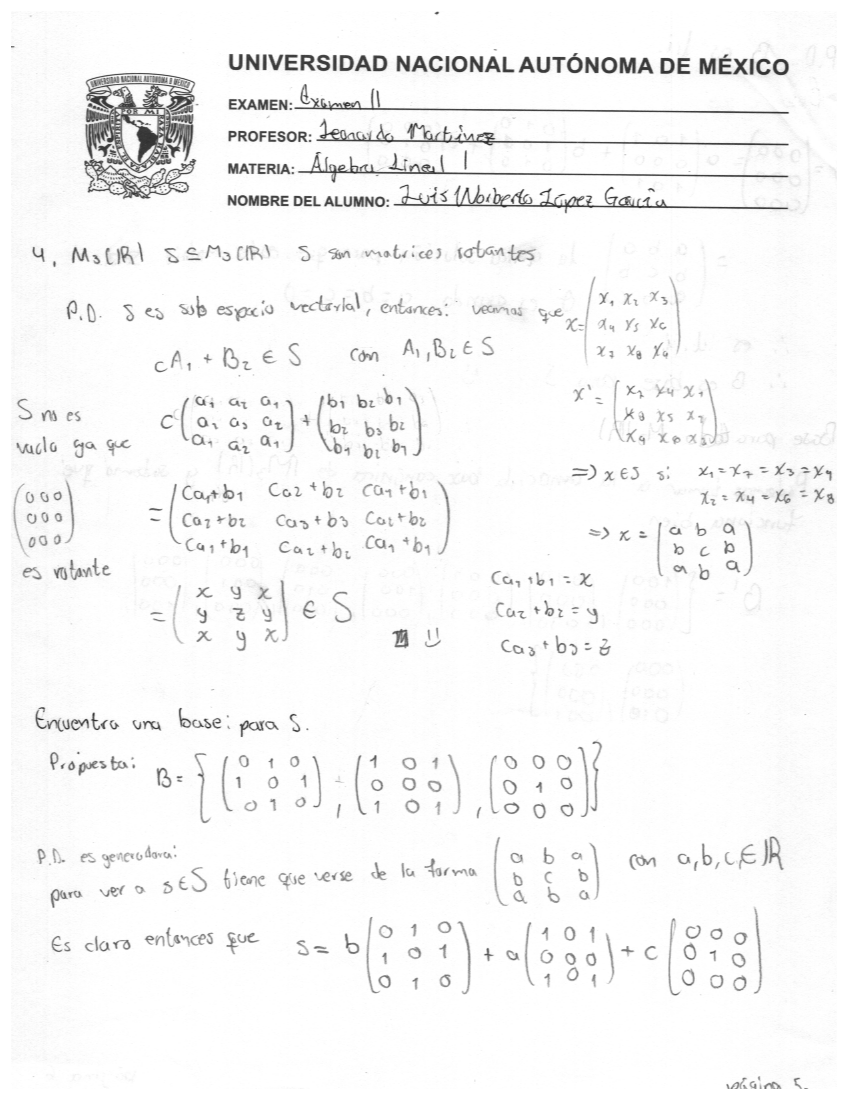 UNIVERSIDAD NACIONAL AUTÓNOMA DE MÉXICO
EXAMEN: Examen II
PROFESOR: Leonardo Martínez
MATERIA: Álgebra Lineal I
NOMBRE DEL ALUMNO: Luis Norberto López García
4. M₃(ℝ) S ⊆ M₃(ℝ) S son matrices rotantes
P.D. S es sub espacio vectorial, entonces: veamos que x = (x₁ x₂ x₃
x₄ x₅ x₆
x₇ x₈ x₉)
cA₁ + B₂ ∈ S con A₁, B₂ ∈ S
x' = (x₇ x₄ x₁
x₈ x₅ x₂
x₉ x₆ x₃)
S no es
vacío ya que
(0 0 0
0 0 0
0 0 0)
es rotante
c(a₁ a₂ a₁
a₂ a₃ a₂
a₁ a₂ a₁) + (b₁ b₂ b₁
b₂ b₃ b₂
b₁ b₂ b₁)
= (ca₁+b₁ ca₂+b₂ ca₁+b₁
ca₂+b₂ ca₃+b₃ ca₂+b₂
ca₁+b₁ ca₂+b₂ ca₁+b₁)
= (x y x
y z y
x y x) ∈ S
⇒ x ∈ S si x₁ = x₇ = x₃ = x₉
x₂ = x₄ = x₆ = x₈
⇒ x = (a b a
b c b
a b a)
ca₁+b₁ = x
ca₂+b₂ = y
ca₃+b₃ = z
Encuentra una base: para S.
Propuesta: B = {(0 1 0
1 0 1
0 1 0), (1 0 1
0 0 0
1 0 1), (0 0 0
0 1 0
0 0 0)}
P.D. es generadora:
para ver a s∈S tiene que verse de la forma (a b a
b c b
a b a) con a, b, c, ∈ ℝ
Es claro entonces que s = b(0 1 0
1 0 1
0 1 0) + a(1 0 1
0 0 0
1 0 1) + c(0 0 0
0 1 0
0 0 0)
página 5.